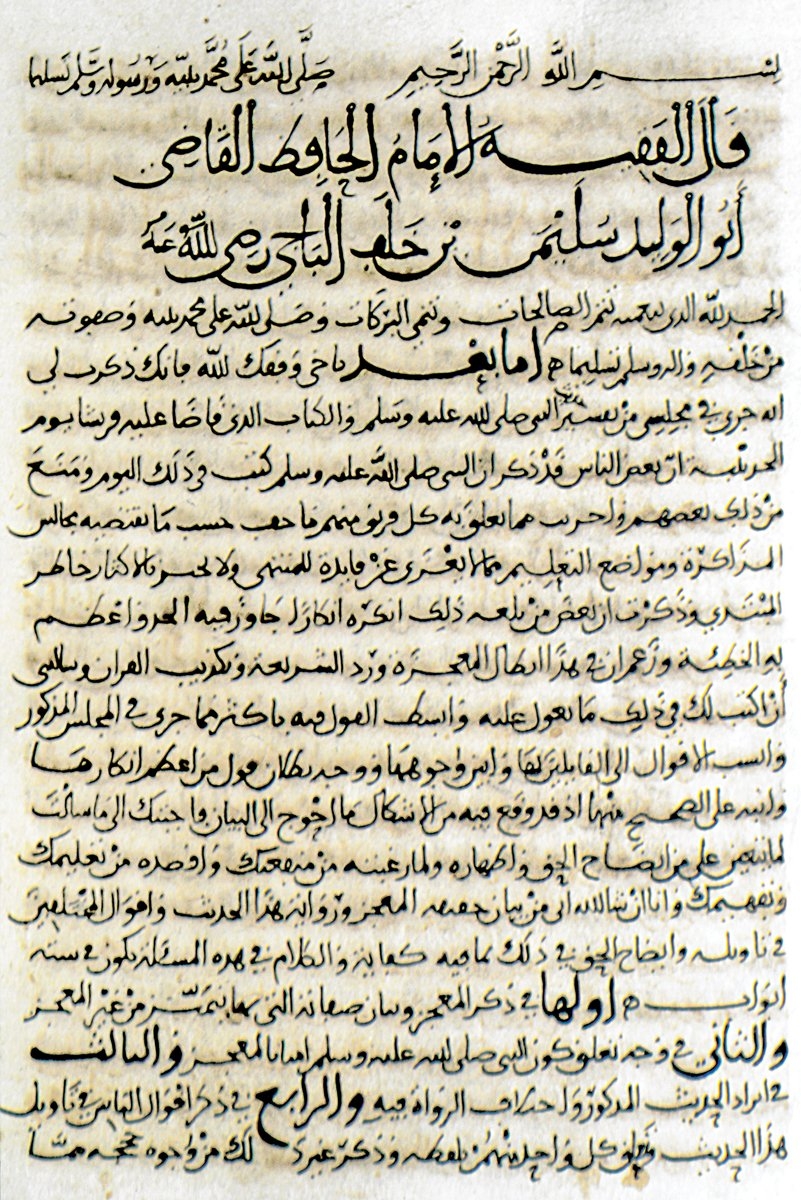 بسم الله الرحمن الرحيم صلى الله على محمد نبيه ورسوله وسلم تسليما
قال الفقيه الإمام الحافظ القاضي
أبو الوليد سليمن بن خلف الباجي رضي الله عنه
الحمد لله الذي بنعمته تتم الصالحات وتنمى البركات وصلى الله على محمد نبيه وصفوته
من خلقه واله وسلم تسليما اما بعد يا خي وفقك الله فانك ذكرت لي
انه جرى في مجلسي من تفسير النبي صلى الله عليه وسلم والكتاب الذي قاضا عليه قريشا يوم
الحديبية ان بعض الناس قد ذكر ان النبي صلى الله عليه وسلم كتب في ذلك اليوم ومنع
من ذلك بعضهم واجريت مما تعلق به كل فريق منهم ما حسب ما تقتضيه مجالس
المذاكرة ومواضع التعليم مما لا يعرى عن فايدة للمنتهي ولا بالاكثار خاطر
المبتدي وذكرت ان بعض من بلغه ذلك انكره انكارا جاوز فيه الحد واعظم
به الخطيئة وزعم ان في هذا ابطال المعجزة ورد الشريعة وتكذيب القران وسالتني
أن اكتب لك في ذلك ما نعول عليه وابسط القول فيه باكثر مما جرى في المجلس المذكور
وانسب الاقوال الى القايلين لها وابين وجوهها ووجه بطلان قول من اعظم انكارها
وانبه على الصحيح منها اذ قد وقع فيه من الاشكال ما احوج الى البيان فاجبتك الى ما سالت
لما تعين علي من ايضاح الحق واظهاره ولما رغبته من منفعتك واقصده من تعليمك
وتفهيمك وانا ان شا الله اتى من بيان حقيقة المعجز ورواية هذا الحديث واقوال المختلفين
في تاويله وايضاح الحق في ذلك بما فيه كفاية والكلام في هذه المسئلة يكون في ستة
ابواب اولها في ذكر المعجز وبيان صفاته التي بها يتميز من غير المعجز
والثاني في وجه تعلق كون النبي صلى الله عليه وسلم اميا بالمعجز والثالث
في ايراد الحديث المذكور واختلاف الرواة فيه والرابع في ذكر اقوال الناس في تاويل
هذا الحديث وتعلق كل واحد منهم بلفظه وذكر غير ذلك من وجوه حججه مما